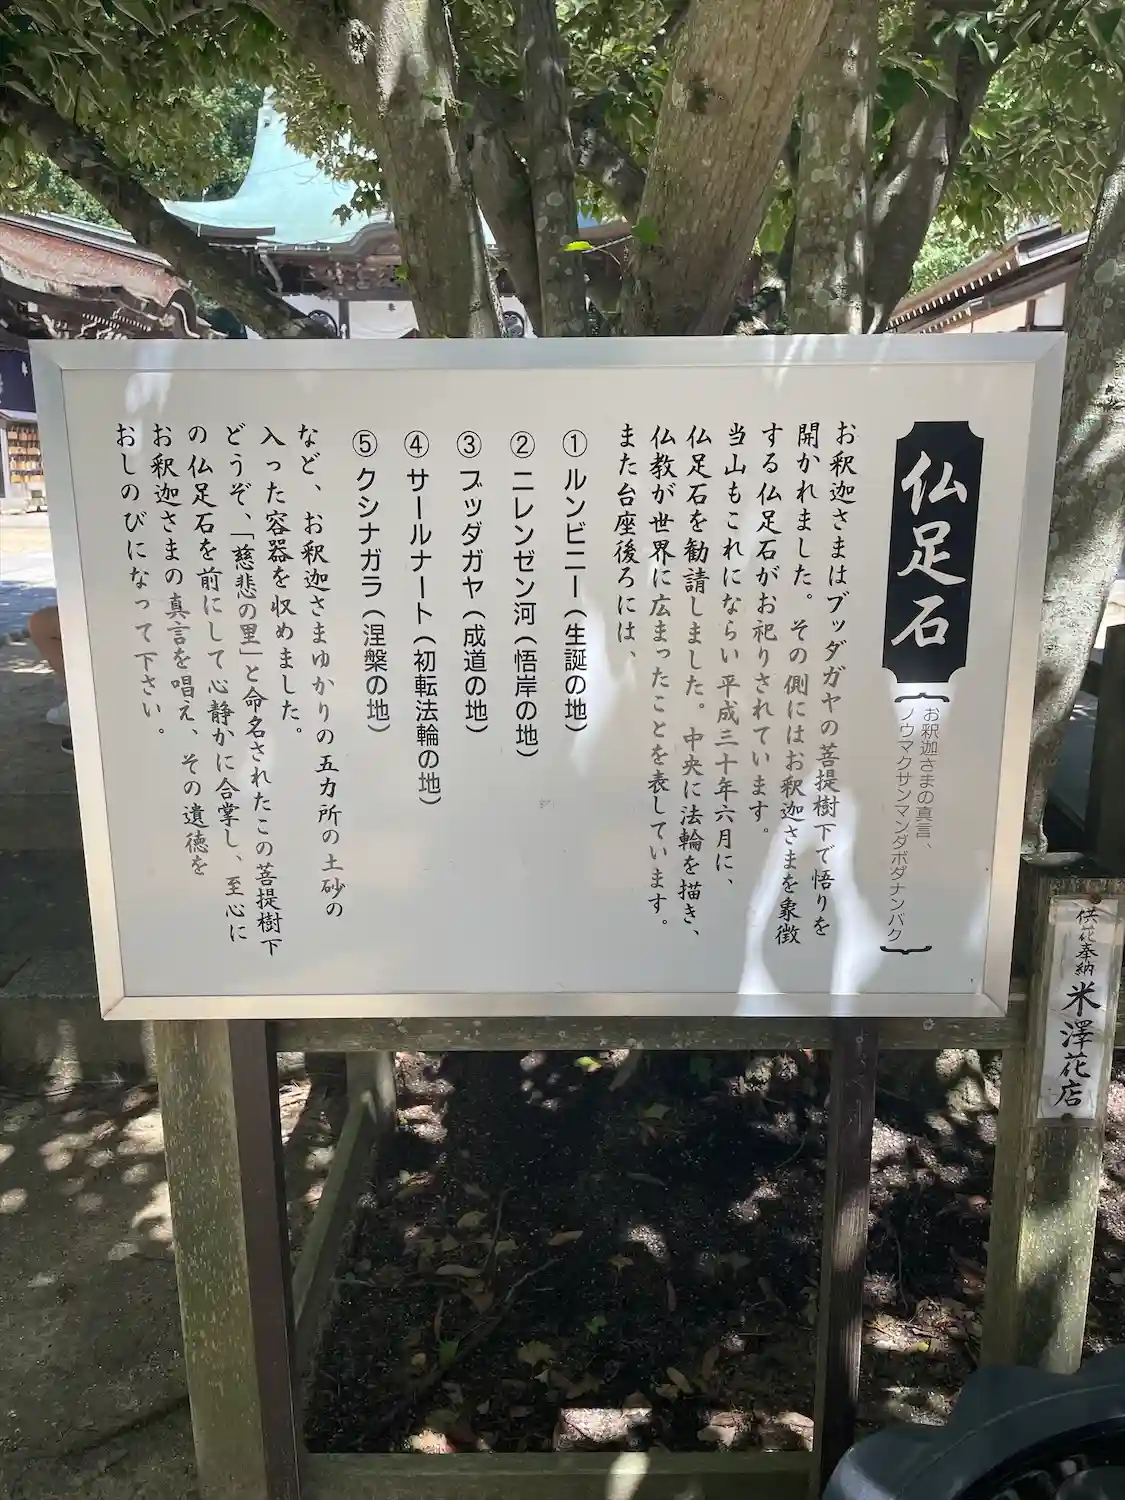 仏足石
お釈迦さまの真言、
ノウマクサンマンダボダナンバク
お釈迦さまはブッダガヤの菩提樹下で悟りを
開かれました。その側にはお釈迦さまを象徴
する仏足石がお祀りされています。
当山もこれにならい平成三十年六月に、
仏足石を勧請しました。中央に法輪を描き、
仏教が世界に広まったことを表しています。
また台座後ろには、
①ルンビニー(生誕の地)
②ニレンゼン河(悟岸の地)
③ブッダガヤ(成道の地)
④サールナート(初転法輪の地)
⑤クシナガラ(涅槃の地)
など、お釈迦さまゆかりの五カ所の土砂の
入った容器を収めました。
どうぞ、「慈悲の里」と命名されたこの菩提樹下
の仏足石を前にして心静かに合掌し、至心に
お釈迦さまの真言を唱え、その遺徳を
おしのびになって下さい。
供花奉納 米澤花店